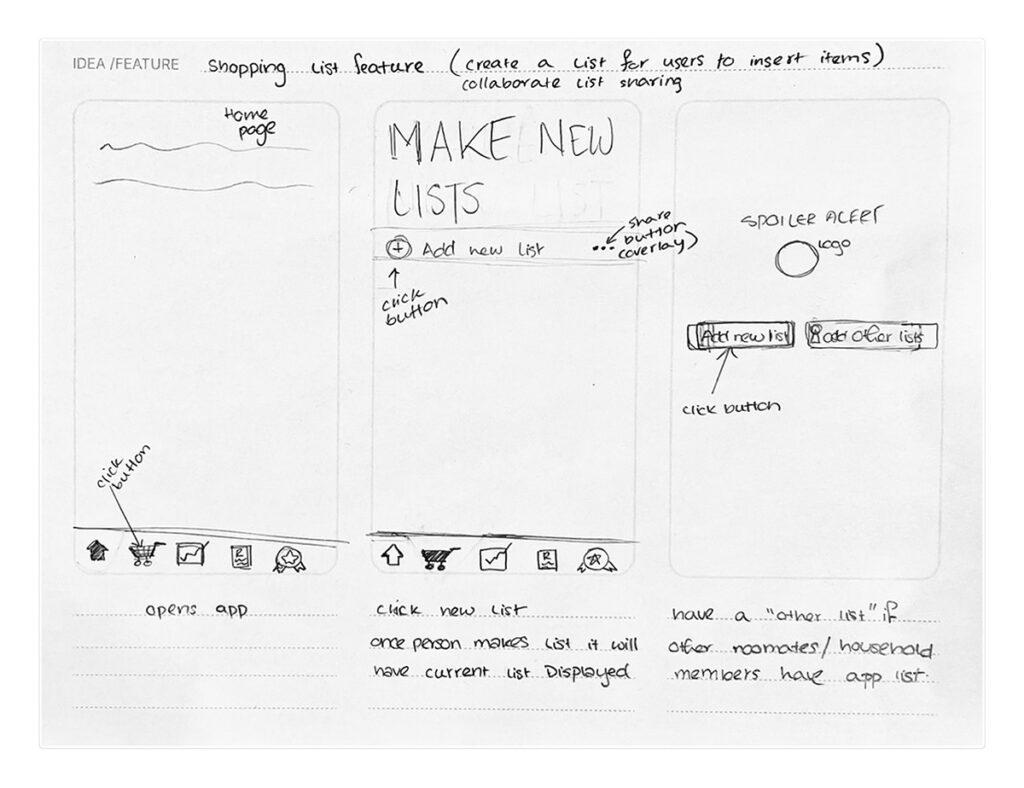 IDEA /FEATURE shopping list feature (create a list for users to insert items)
collaborate list sharing
Home
page
click
button
opens app
MAKE NEW
LISTS
LIST
+ Add new list ...
share
button
overlay)
click
button
R
click new list
once person makes list it will
have current list Displayed
SPOILER ALERT
logo
Add new list
add other lists
click button
have a "other list" if
other roomates/household
members have app list.